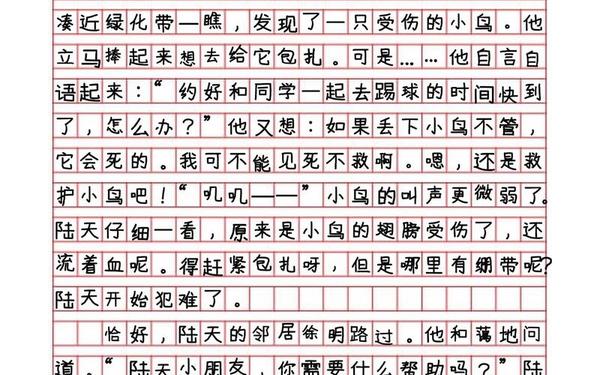 凑近绿化带一瞧，发现了一只受伤的小鸟。他
立马捧起来想去给它包扎。可是……他自言自
语起来：“约好和同学一起去踢球的时间快到
了，怎么办？”他又想：如果丢下小鸟不管，
它会死的。我可不能见死不救啊。嗯，还是救
护小鸟吧！“叽叽——”小鸟的叫声更微弱了。
陆天仔细一看，原来是小鸟的翅膀受伤了，还
流着血呢。得赶紧包扎呀，但是哪里有绷带呢？
陆天开始犯难了。
恰好，陆天的邻居徐明路过。他和蔼地问
道。“陆天小朋友，你需要什么帮助吗？”陆